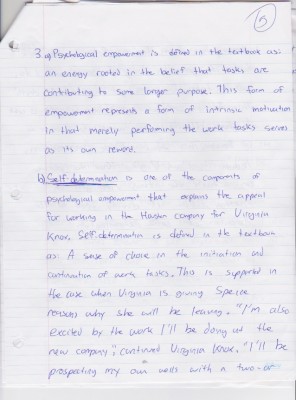 5
3. a) Psychological empowerment is defined in the textbook as:
an energy rooted in the belief that tasks are
contributing to some longer purpose. This form of
empowerment represents a form of intrinsic motivation
in that merely performing the work tasks serves
as its own reward.
b) Self determination is one of the components of
psychological empowerment that explains the appeal
for working in the company for Virginia
Knox. Self-determination is defined in the textbook
as: A sense of choice in the initiation and
continuation of work tasks. This is supported in
the case when Virginia is giving
reasons why she will be leaving. "I'm also
excited by the work I'll be doing at the
new company", continued Virginia Knox. "I'll be
prospecting my own wells with a two-or